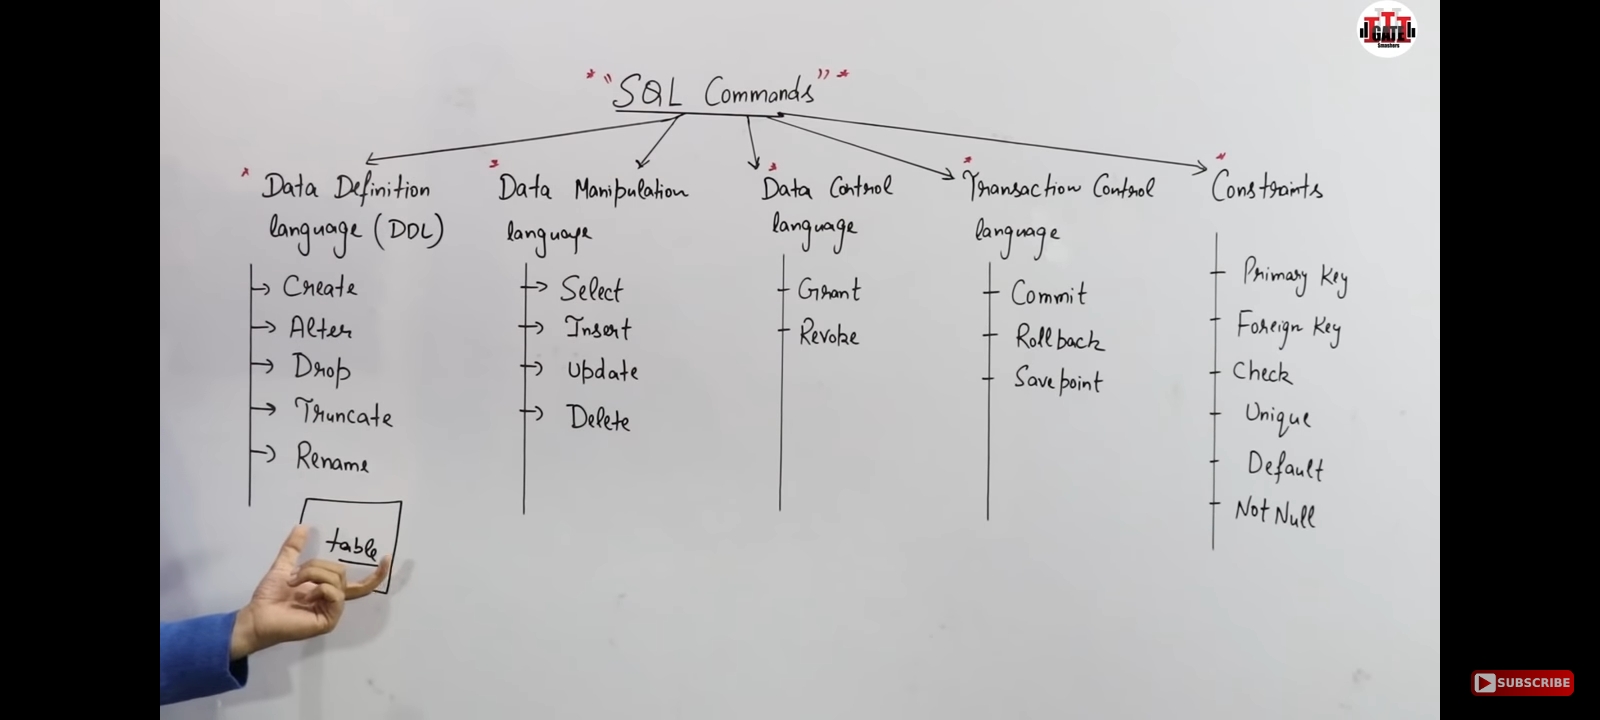 "SQL Commands"
Data Definition
language (DDL)
Create
Alter
Drop
Truncate
Rename
table
Data Manipulation
language
Select
Insert
Update
Delete
Data Control
language
Grant
Revoke
Transaction Control
language
Commit
Rollback
Savepoint
Constraints
Primary Key
Foreign Key
Check
Unique
Default
Not Null
GATE
Smashers
SUBSCRIBE